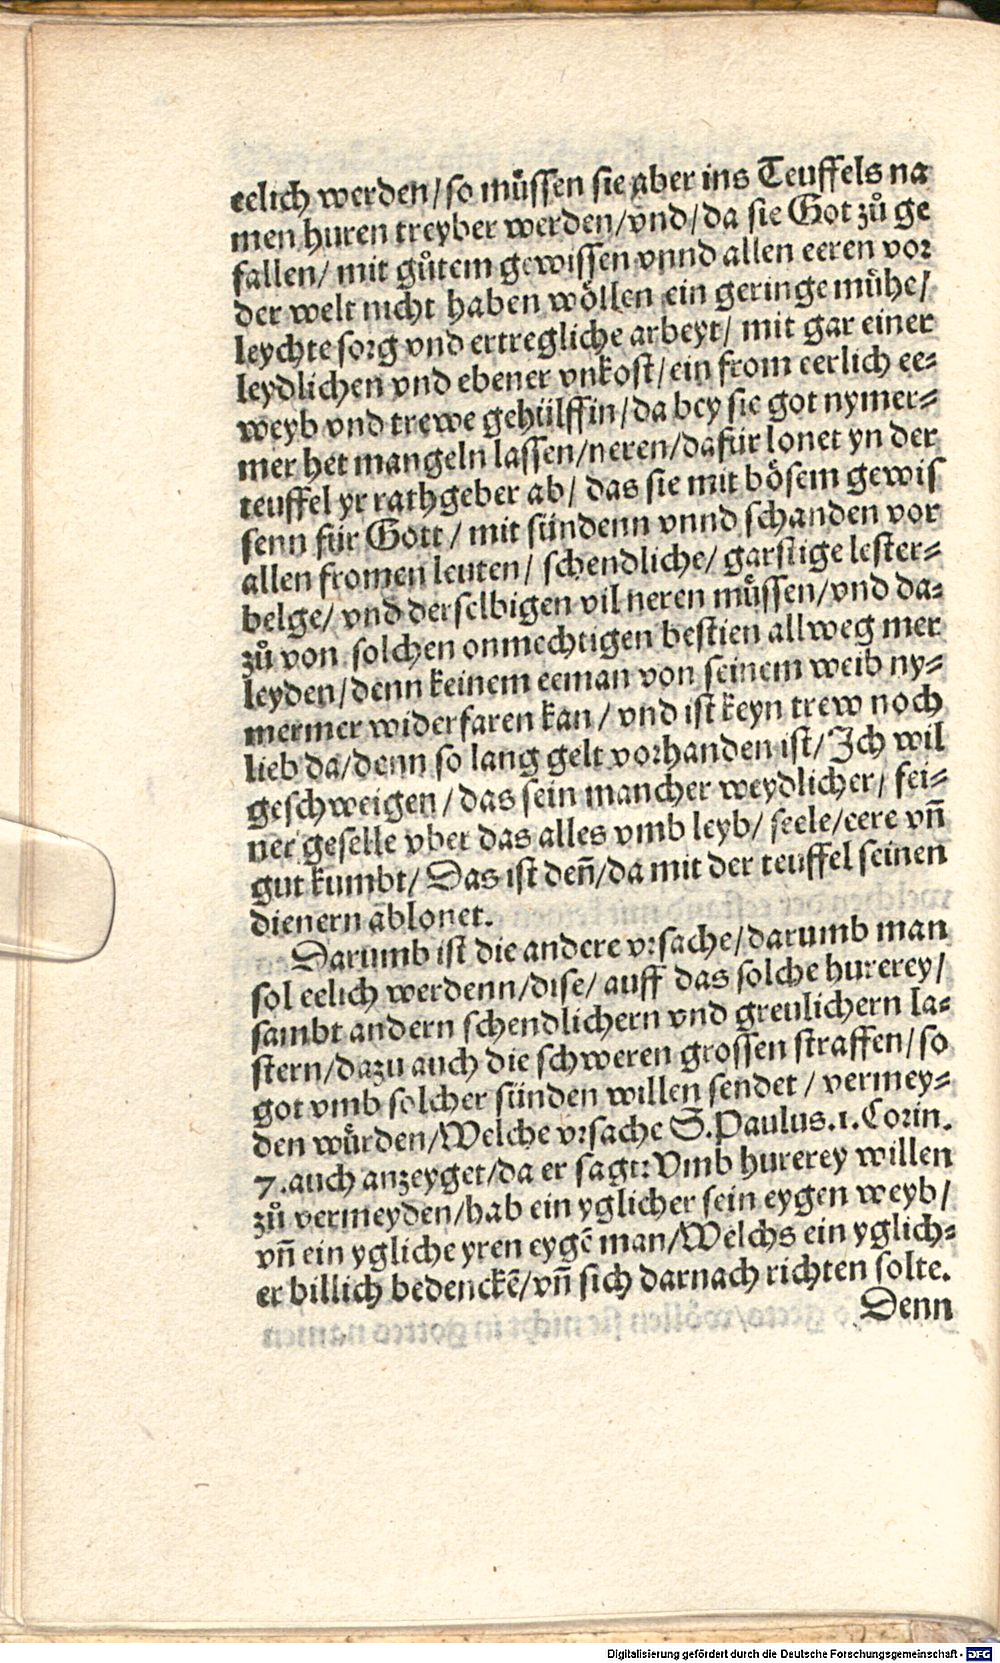 eelich werden/so müssen sie aber ins Teuffels na
men huren treyber werden/vnd/da sie Got zů ge
fallen/ mit gůtem gewissen vnnd allen eeren vor
der welt nicht haben wöllen ein geringe mühe/
leychte sorg vnd ertregliche arbeyt/ mit gar einer
leydlichen vnd ebener vnkost/ein from eerlich ee-
weyb vnd trewe gehülffin/da bey sie got nymer-
mer het mangeln lassen/neren/dafür lonet yn der
teuffel yr rathgeber ab/ das sie mit bösem gewis
senn für Gott/ mit sündenn vnnd schanden vor
allen fromen leuten/ schendliche/ garstige lester-
belge/ vnd derselbigen vil neren müssen/vnd da-
zů von solchen onmechtigen bestien allweg mer
leyden/denn keinem eeman von seinem weib ny-
mermer widerfaren kan/ vnd ist keyn trew noch
lieb da/denn so lang gelt vorhanden ist/Ich wil
geschweigen/das sein mancher weydlicher/ fei-
ner geselle vber das alles vmb leyb/ seele/eere vñ
gut kumbt/ Das ist deñ/da mit der teuffel seinen
dienern ablonet.
Darumb ist die andere vrsache/darumb man
sol eelich werdenn/dise/ auff das solche hurerey/
sambt andern schendlichern vnd greulichern la-
stern/dazu auch die schweren grossen straffen/so
got vmb solcher sünden willen sendet/ vermey-
den würden/Welche vrsache S.Paulus.1.Corin.
7.auch anzeyget/da er sagt:Vmb hurerey willen
zů vermeyden/hab ein yglicher sein eygen weyb/
vñ ein ygliche yren eygē man/Welchs ein yglich-
er billich bedenckē/vñ sich darnach richten solte.
Denn
Digitalisierung gefördert durch die Deutsche Forschungsgemeinschaft - DFG